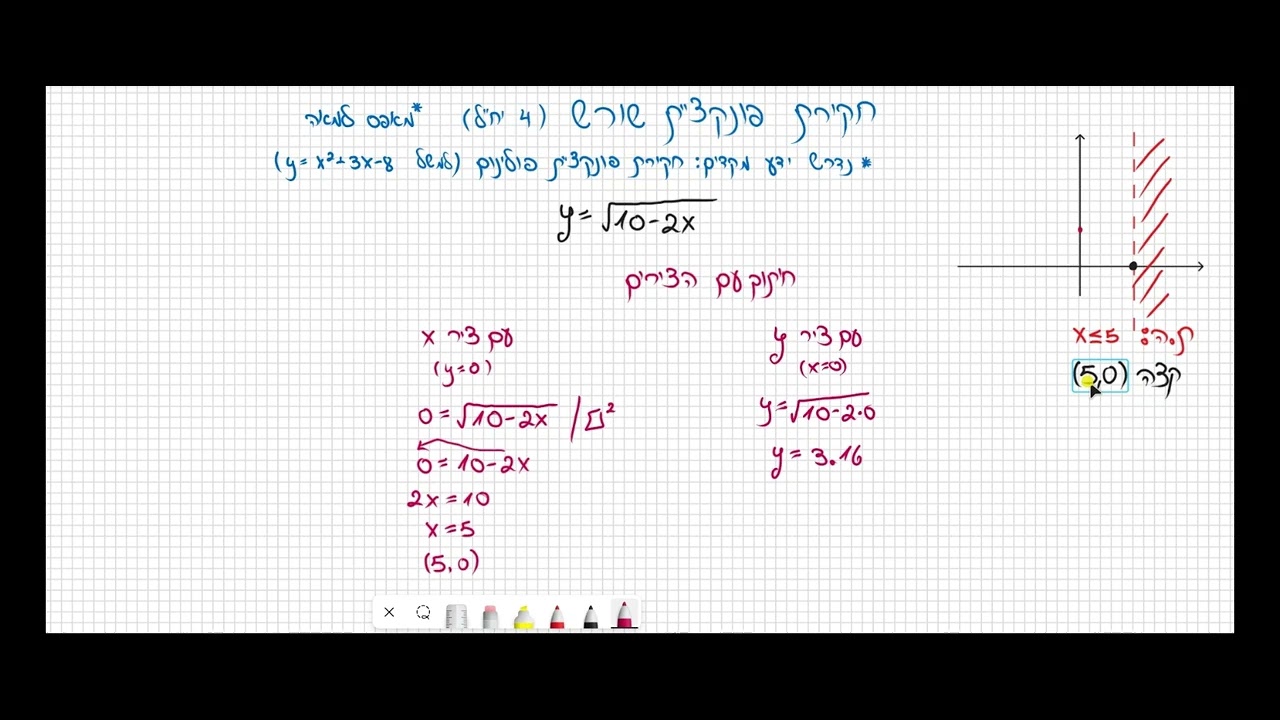 חקירת פונקצית שורש (4 יח"ל) *מאפס למאה
* נדרש ידע מקדים: חקירת פונקצית פולינום (למשל y=x²+3x-8)
y=√10-2x
חיתוך עם הצירים
עם ציר y
(x=0)
y=√10-2·0
y=3.16
עם ציר x
(y=0)
0=√10-2x /□²
0=10-2x
2x=10
x=5
(5,0)
ת.ה: x≤5
קצה (5,0)